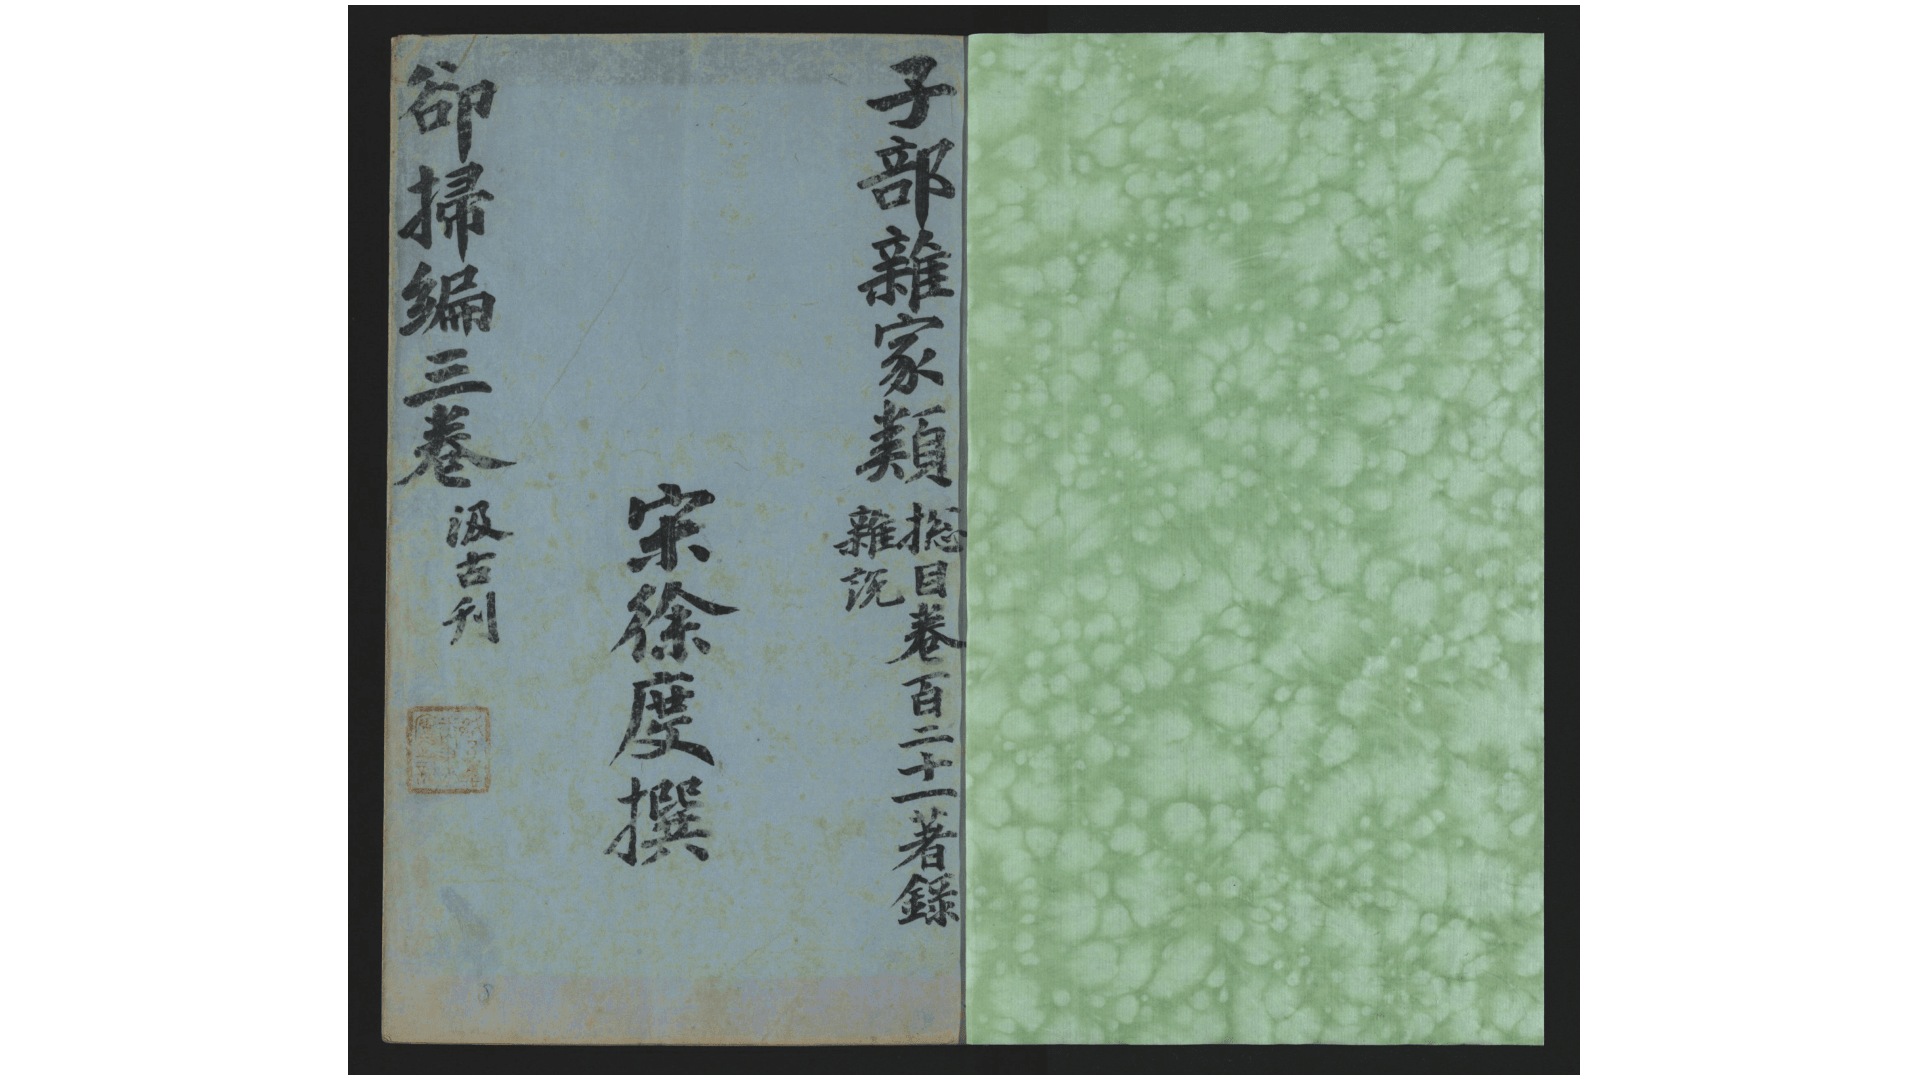 子部雜家類
捴目卷百二十一著錄
雜説
宋徐度撰
卻掃編三卷
汲古刋